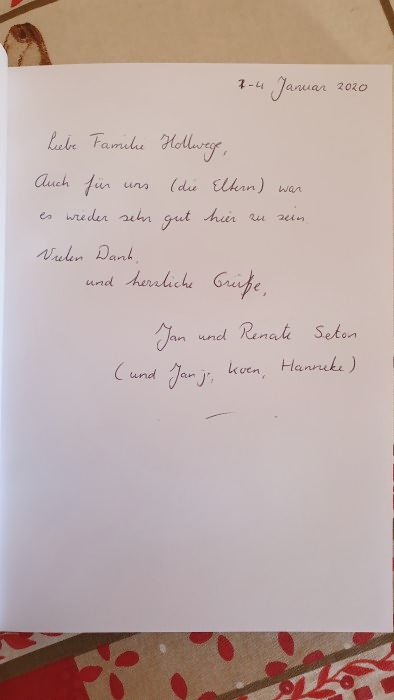 1-4 Januar 2020
Liebe Familie Hollwege,
Auch für uns (die Eltern) war
es wieder sehr gut hier zu sein
Vielen Dank,
und herzliche Grüße,
Jan und Renate Seton
(und Jan jr, Koen, Hanneke)